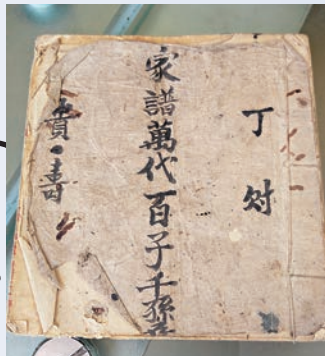 丁財
家譜萬代百子千孫
貴壽